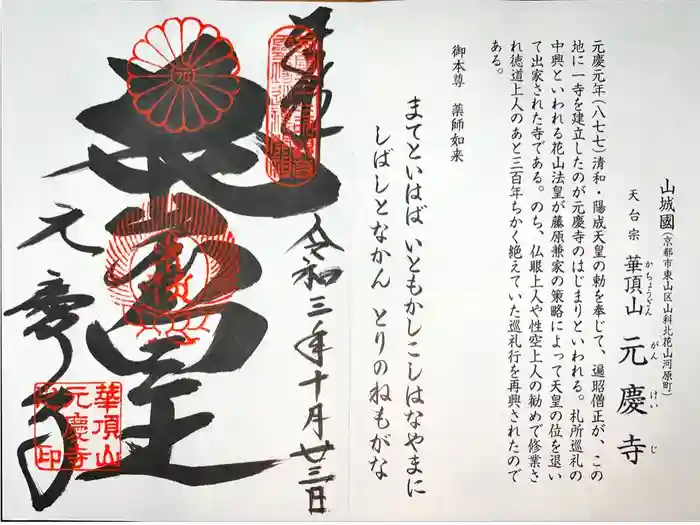 山城國(京都市東山区山科北花山河原町)
天台宗 華頂山 元慶寺
かちょうざん
がんけいじ
元慶元年(八七七)清和・陽成天皇の勅を奉じて、遍昭僧正が、この
地に一寺を建立したのが元慶寺のはじまりといわれる。札所巡礼の
中興といわれる花山法皇が藤原兼家の策略によって天皇の位を退い
て出家された寺である。のち、仏眼上人や性空上人の勧めで修業さ
れ徳道上人のあと三百年ちかく絶えていた巡礼行を再興されたので
ある。
御本尊 薬師如来
まてといはば いともかしこしはなやまに
しばしとなかん とりのねもがな
令和三年十月廿三日
元慶寺
華頂山
元慶寺